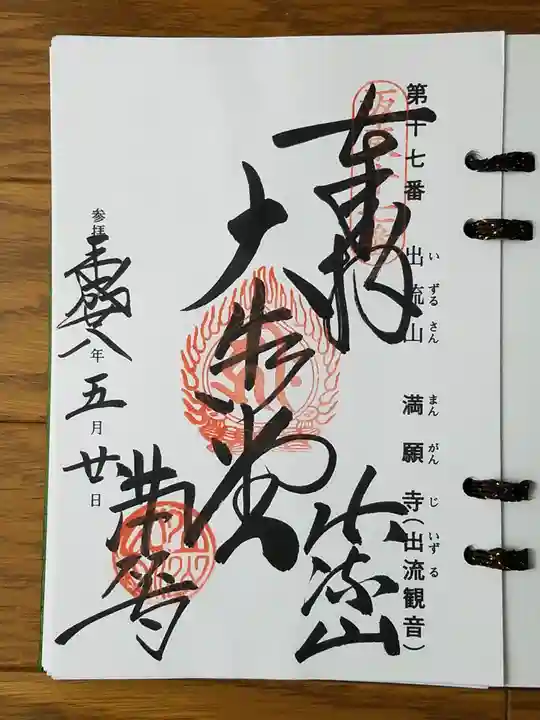 第十七番 出流山 満願寺(出流観音)
いずるさん まんがんじ いずる
奉拝
出流山
大悲堂
満願寺
参拝 平成廿八年五月廿日